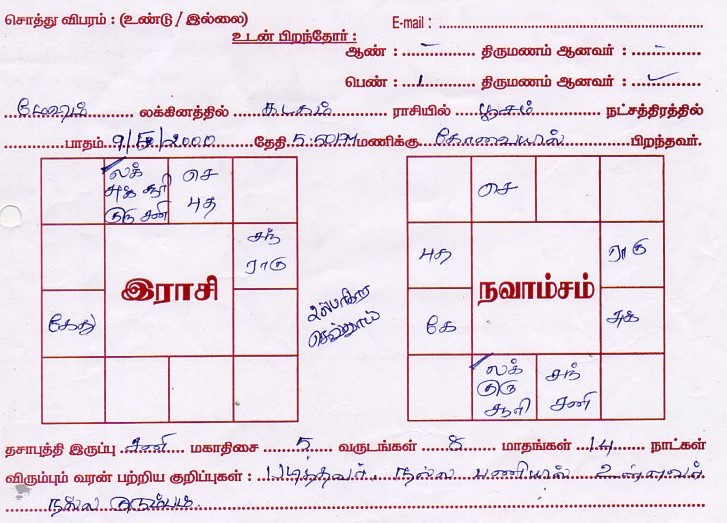 சொத்து விபரம் : (உண்டு / இல்லை) E-mail :
உடன் பிறந்தோர் :
ஆண் : – திருமணம் ஆனவர் : –
பெண் : 1 திருமணம் ஆனவர் : ✓
மேஷம் லக்கினத்தில் கடகம் ராசியில் பூசம் நட்சத்திரத்தில்
பாதம் 9/5/2000 தேதி 5.50 மணிக்கு கோவையில் பிறந்தவர்.
லக் செ
சுக் சூரி புத
குரு சனி
சந்
ராகு
இராசி
கேது
செவ்வாய்
செ
புத ராகு
நவாம்சம்
கே சுக்
லக் சந்
குரு சனி
சூரி
தசாபுத்தி இருப்பு சனி மகாதிசை 5 வருடங்கள் 8 மாதங்கள் 14 நாட்கள்
விரும்பும் வரன் பற்றிய குறிப்புகள் : படித்தவர், நல்ல பணியில் உள்ளவர்
நல்ல குடும்பம்